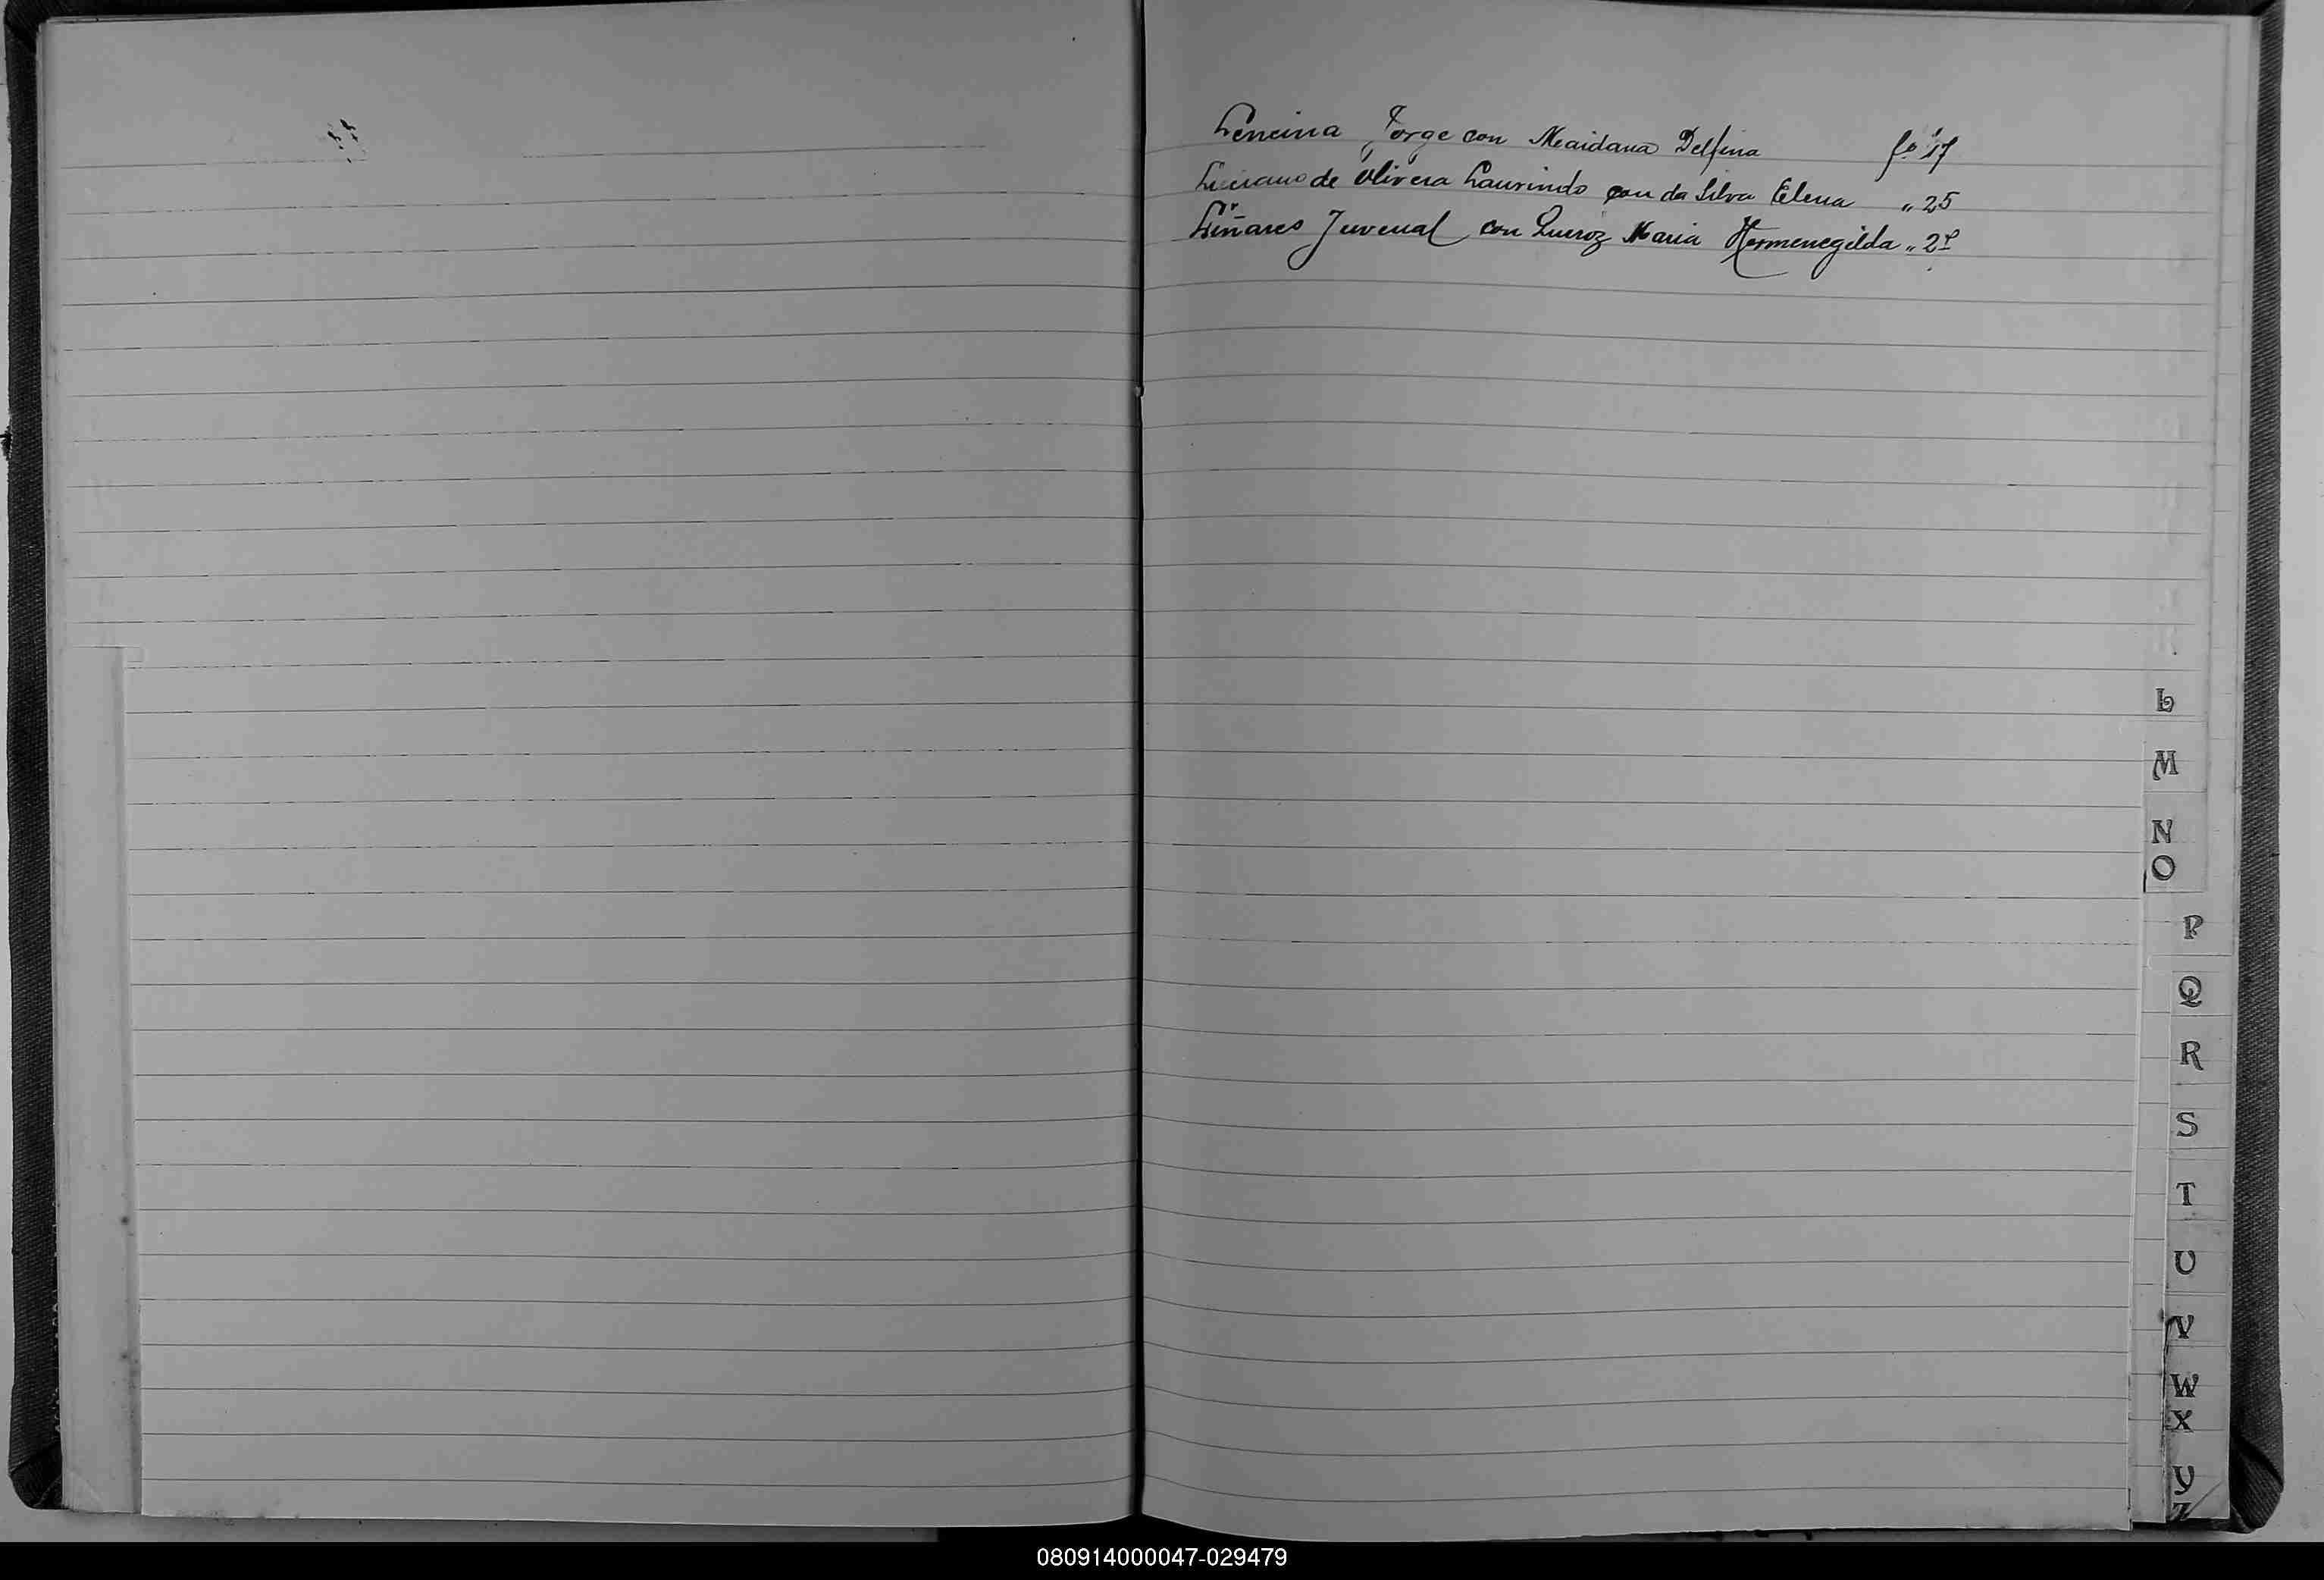 Lencina Jorge con Maidana Delfina fo 17
Luciano de Olivera Laurindo con da Silva Elena „ 25
Liñares Juvenal con Queiroz Maria Hermenegilda „
L
M
N
O
P
Q
R
S
T
U
V
W
X
Y
Z
080914000047-029479